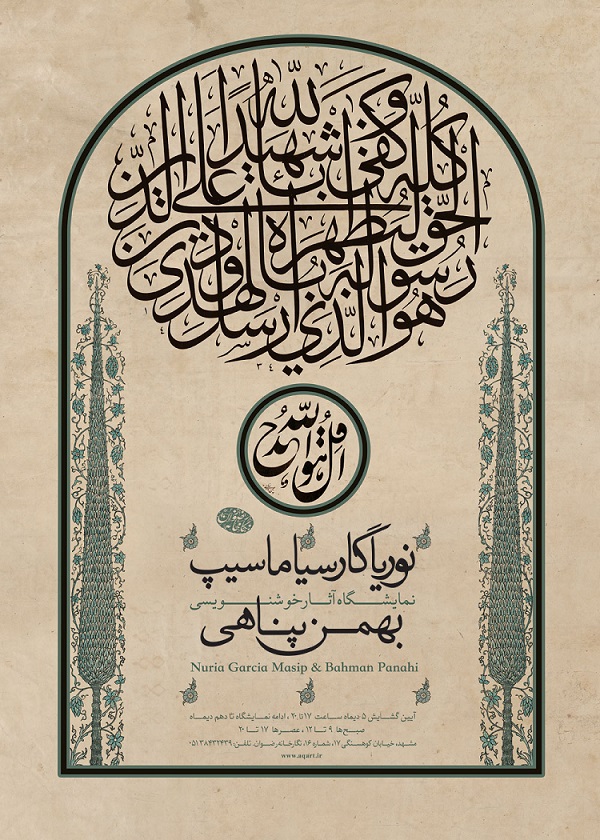 هو الذي ارسل رسوله بالهدى ودين الحق ليظهره على الدين كله وكفى بالله شهيدا
قل هو الله احد
نوریا گارسیا ماسیپ
نمایشگاه آثار خوشنویسی
بهمن پناهی
Nuria Garcia Masip & Bahman Panahi
آیین گشایش ۵ دیماه ساعت ۱۷ تا ۲۰ ، ادامه نمایشگاه تا دهم دیماه
صبح‌ها ۹ تا ۱۲ ، عصرها ۱۷ تا ۲۰
مشهد، خیابان کوهسنگی ۱۷، شماره ۱۶، نگارخانه رضوان. تلفن: ۰۵۱۳۸۴۳۲۴۳۹
www.aqart.ir